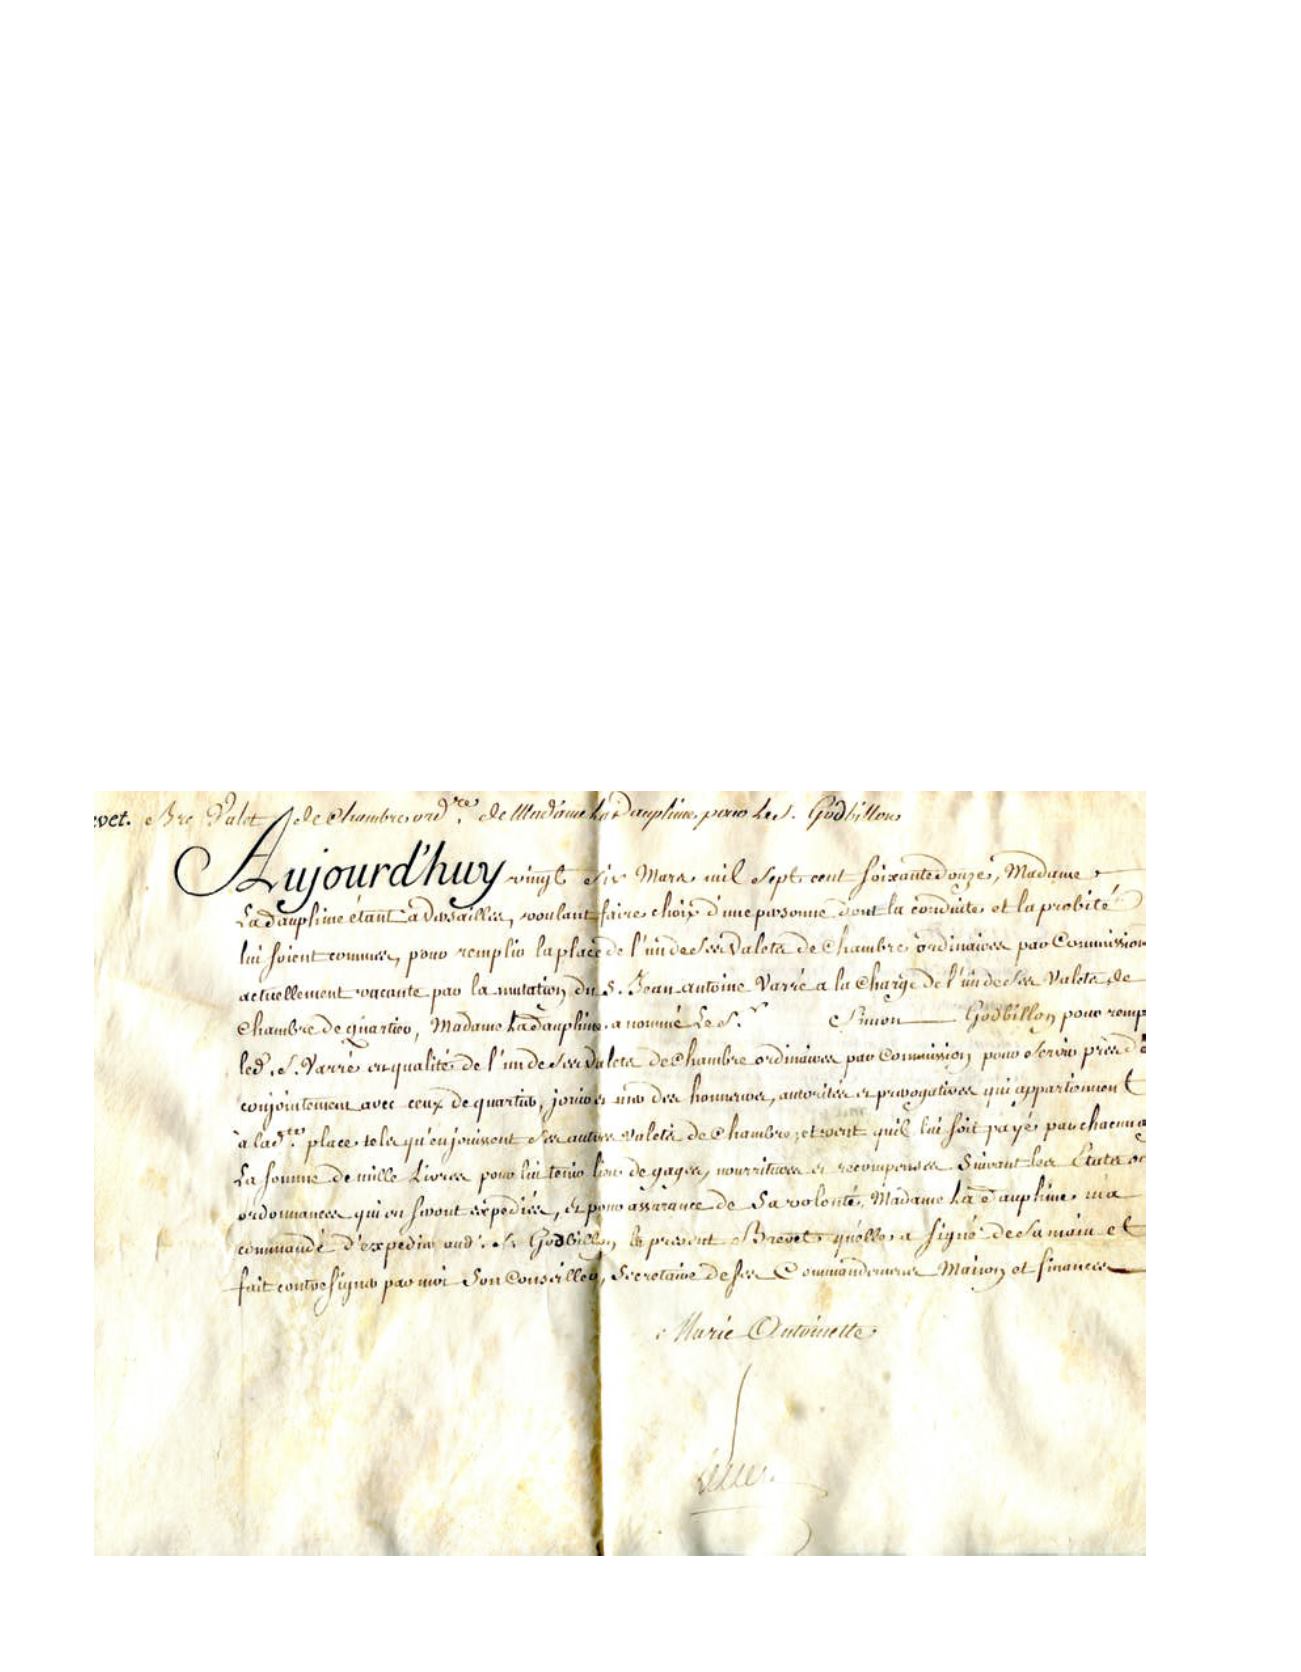 evet. Valet de Chambre ord.re de Madame La Dauphine, pour Le S. Godbillon
Aujourd'huy vingt six Mars mil sept cent soixante douze, Madame
La dauphine étant a Versailles, voulant faire choix d'une personne dont la conduite et la probité
lui soient connues, pour remplir la place de l'un de ses Valets de Chambre ordinaires par Commission
actuellement vacante par la mutation du S. Jean antoine Varré a la Charge de l'un de ses Valets de
Chambre de quartier, Madame La dauphine a nommé Le S.r Simon Godbillon pour remp
led. S. Varré en qualité de l'un de ses Valets de Chambre ordinaires par Commission pour servir près d'e
conjointement avec ceux de quartier, jouir et user des honneurs, autorités et prerogatives qui appartiennent
a lad.te place tels qu'en jouissent ses autres valets de Chambre, et veut qu'il lui soit payé par chacun a
La somme de mille Livres pour lui tenir lieu de gages, nourritures et recompenses Suivant les Etats ou
ordonnances qui en seront expediés, Et pour assurance de Sa volonté, Madame La Dauphine m'a
commandé d'expedier aud. S. Godbillon le present Brevet qu'elle a signé de Sa main et
fait contresigner par moi Son Conseiller, Secretaire de ses Commandemens Maison et finances
Marie Antoinette